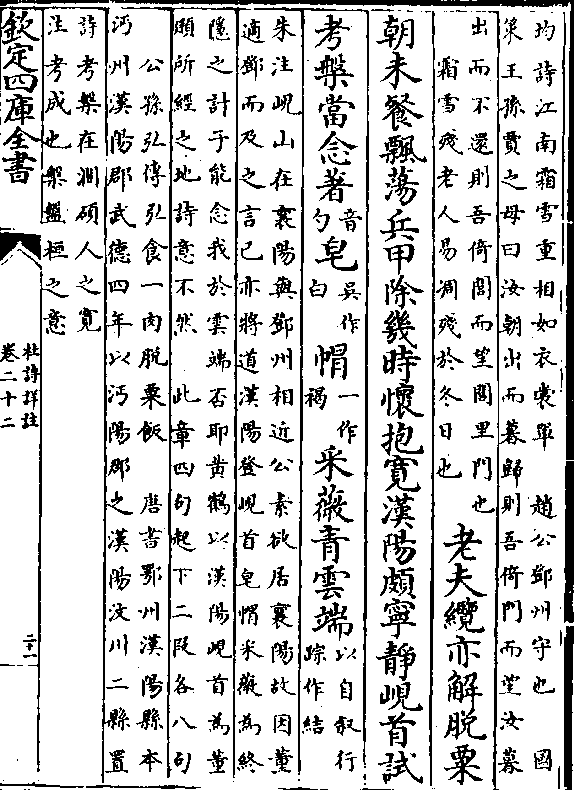 均詩江南霜雪重相如衣裳單　趙公鄧州守也　國
策王孫賈之母曰汝朝出而暮歸則吾倚門而望汝暮
出而不還則吾倚閭而望閭里門也
霜雪殘老人易凋殘於冬日也
老夫纜亦解脫粟
朝未餐飄蕩兵甲除幾時懷抱寬漢陽頗寧靜峴首試
考槃當念著音勺皂吳作白帽一作褐采薇青雲端以自叙行踪作結
朱注峴山在襄陽與鄧州相近公素欲居襄陽故因董
適鄧而及之言已亦將道漢陽登峴首皂帽采薇為終
隱之計子能念我於雲端否耶黃鶴以漢陽峴首為董
頲所經之地詩意不然　此章四句起下二段各八句
公孫弘傳弘食一肉脫粟飯　唐書鄂州漢陽縣本
沔州漢陽郡武德四年以沔陽郡之漢陽汶川二縣置
詩考槃在澗碩人之寬
注考成也槃盤桓之意
欽定四庫全書
杜詩詳註
卷二十二
二十一